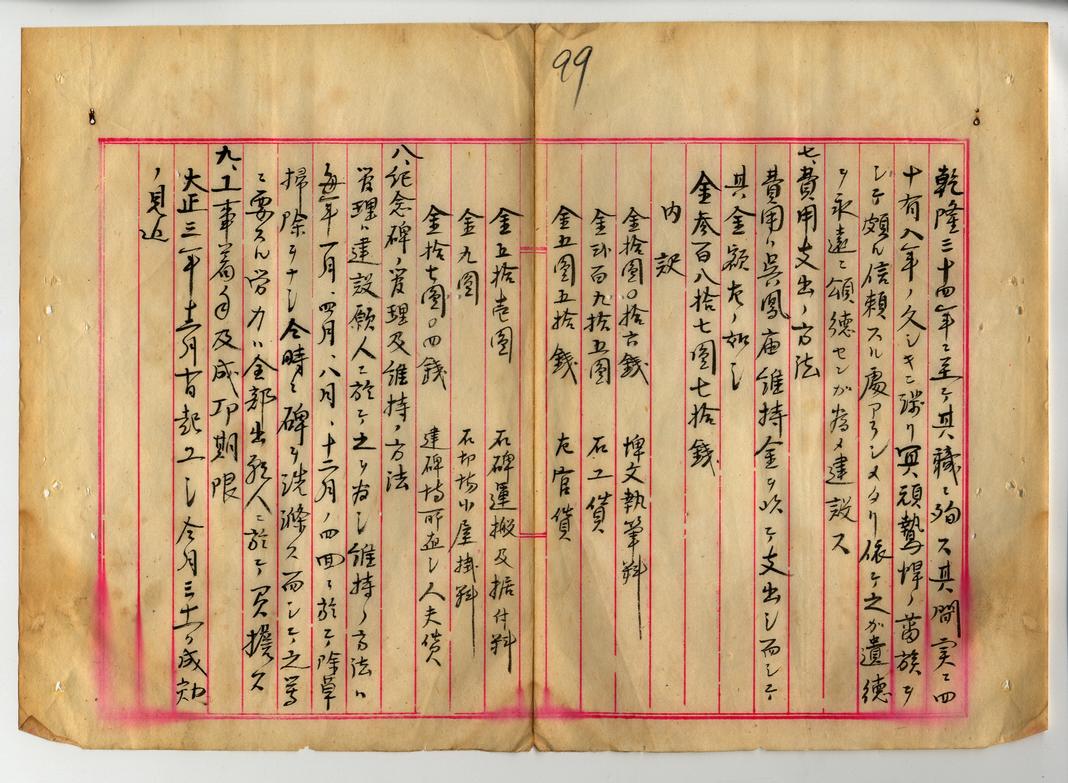 99
乾隆三十四年ニ至テ其職ニ殉ス其間実ニ四
十有八年ノ久シキニ渉リ冥頑鷙悍ノ蕃族ヲ
シテ頗ル信頼スル處アラシメタリ依テ之カ遺德
ヲ永遠ニ頌德センガ為メ建設ス
七、費用支出ノ方法
費用ハ呉鳳庙維持金ヲ以テ支出シ而シテ
其金額左ノ如シ
金参百八拾七圓七拾錢
内訳
金拾圓〇拾六錢 碑文執筆料
金弐百九拾五圓 石工賃
金五圓五拾錢 左官賃
金五拾壱圓 石碑運搬及据付料
金九圓 石切場小屋掛料
金拾七圓〇四錢 建碑場所直シ人夫賃
八、紀念碑ノ管理及維持ノ方法
管理ハ建設願人ニ於テ之ヲ為シ維持ノ方法ハ
毎年一月、四月、八月、十二月ノ四回ニ於テ除草
掃除ヲナシ仝時ニ碑ヲ洗滌ス而シテ之等
ニ要スル労力ハ全部出願人ニ於テ負擔ス
九、工事着手及成功期限
大正三年十二月 起工シ仝月三十一ヲ成効
ノ見込